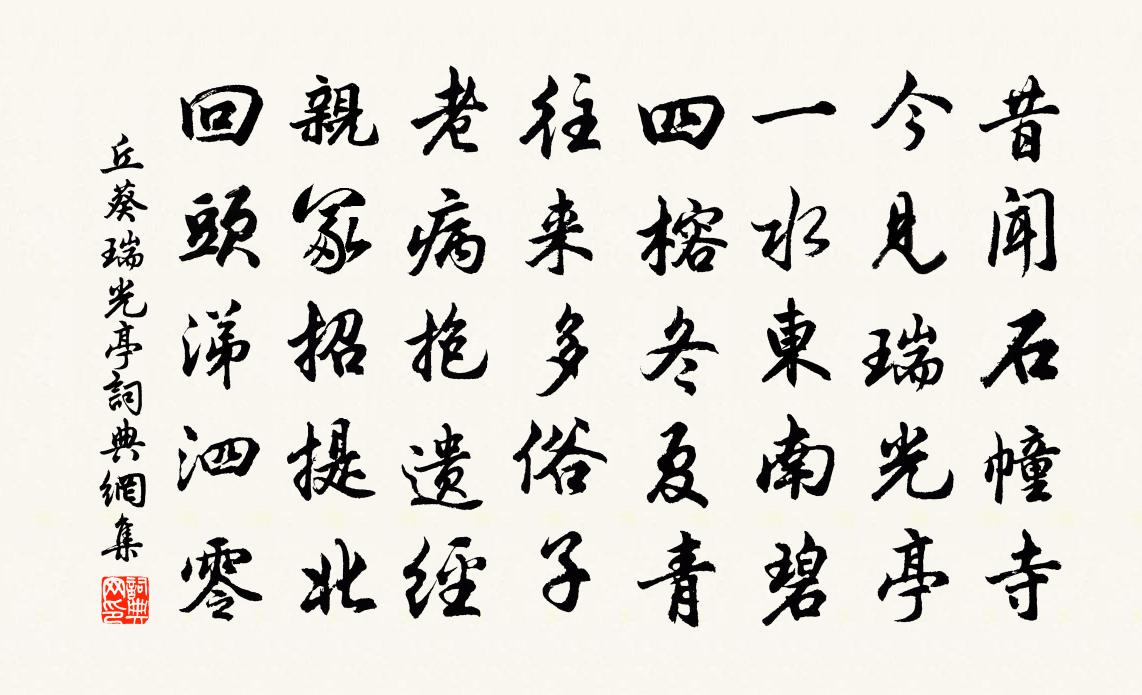 昔聞石幢寺
今見瑞光亭
一水東南碧
四榕冬夏青
往来多俗子
老病抱遺經
親冢招提北
回頭涕泗零
丘葵瑞光亭詞典網集
詞典网印